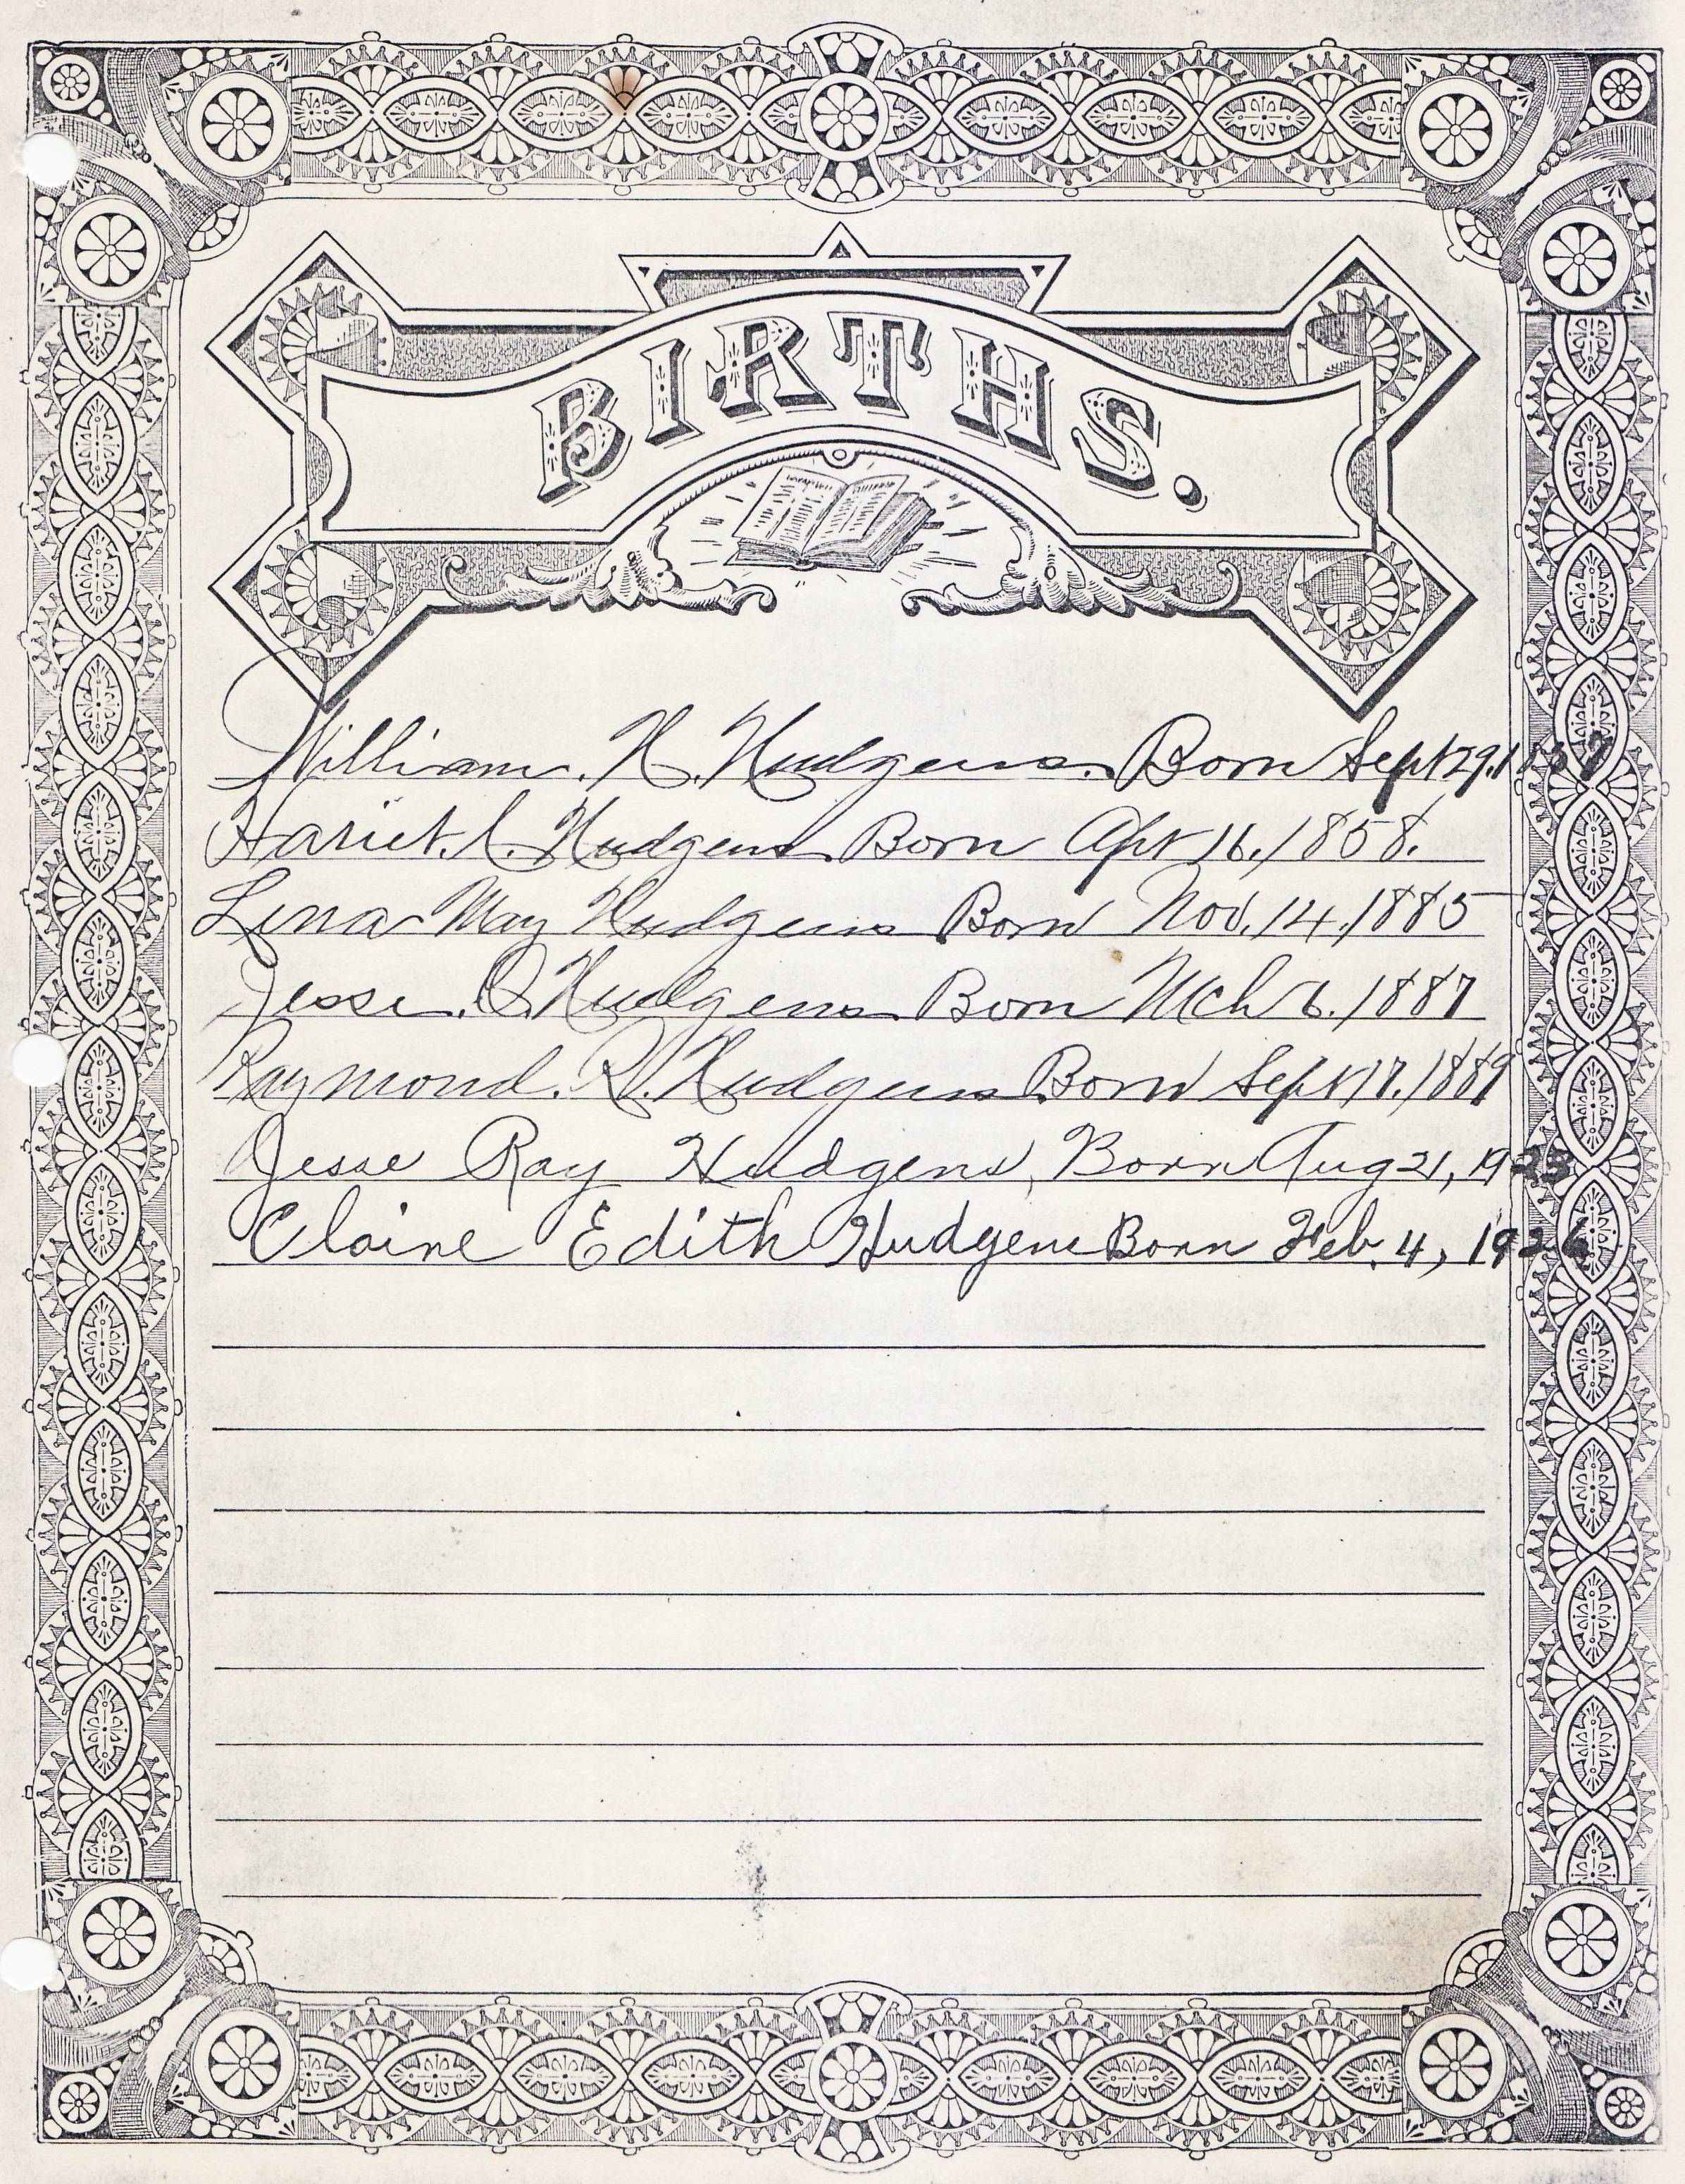 BIRTHS.
William. H. Hudgens. Born Sept 29. 1859
Hariet. C. Hudgens Born Apr 16. 1858.
Lena May Hudgens Born Nov. 14. 1885
Jesse. O. Hudgens Born Mch 6. 1887
Raymond. R. Hudgens Born Sept 17. 1889
Jesse Ray Hudgens, Born Aug 21, 1923
Claire Edith Hudgens Born Feb. 4, 1926